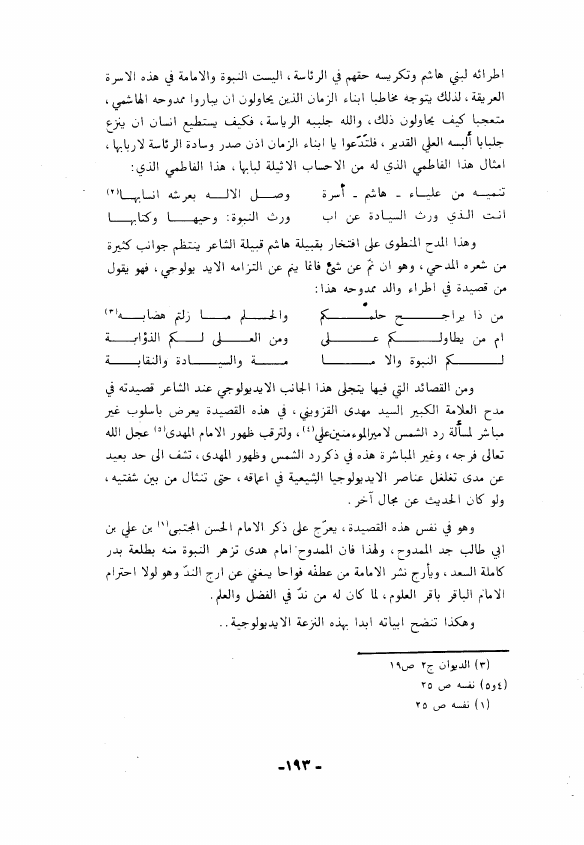 اطرائه لبني هاشم وتكريسه حقهم في الرئاسة، اليست النبوة والامامة في هذه الاسرة
العريقة، لذلك يتوجه مخاطبا ابناء الزمان الذين يحاولون ان يباروا ممدوحه الهاشمي،
متعجبا كيف يحاولون ذلك، والله جلببه الرياسة، فكيف يستطيع انسان ان ينزع
جلبابا ألبسه العلي القدير، فلتدّعوا يا ابناء الزمان اذن صدر وسادة الرئاسة لاربابها،
امثال هذا الفاطمي الذي له من الاحساب الاثيلة لبابها، هذا الفاطمي الذي:
تنميه من علياء - هاشم - أسرة وصل الاله بعرشه انسابها (٢)
انت الذي ورث السيادة عن اب ورث النبوة: وحيها وكتابها
وهذا المدح المنطوى على افتخار بقبيلة هاشم قبيلة الشاعر ينتظم جوانب كثيرة
من شعره المدحي، وهو ان نمّ عن شئ فانما ينم عن التزامه الايد يولوجي، فهو يقول
من قصيدة في اطراء والد ممدوحه هذا:
من ذا يراجح حلمكم والحلم ما زلتم هضابه (٣)
ام من يطاولكم على ومن العلى لكم الذؤابة
لكم النبوة والا ما مة والسيادة والنقابة
ومن القصائد التي فيها يتجلى هذا الجانب الايديولوجي عند الشاعر قصيدته في
مدح العلامة الكبير السيد مهدى القزويني، في هذه القصيدة يعرض باسلوب غير
مباشر لمسألة رد الشمس لامير الموءمنين علي (٤)، ولترقب ظهور الامام المهدى (٥) عجل الله
تعالى فرجه، وغير المباشرة هذه في ذكر رد الشمس وظهور المهدى، تشف الى حد بعيد
عن مدى تغلغل عناصر الايديولوجيا الشيعية في اعماقه، حتى تنثال من بين شفتيه،
ولو كان الحديث عن مجال آخر.
وهو في نفس هذه القصيدة، يعرّج على ذكر الامام الحسن المجتبى (١) بن علي بن
ابي طالب جد الممدوح، ولهذا فان الممدوح امام هدى تزهر النبوة منه بطلعة بدر
كاملة السعد، ويأرج نشر الامامة من عطفْه فواحا يغني عن ارج الندّ وهو لولا احترام
الامام الباقر باقر العلوم، لما كان له من ندّ في الفضل والعلم.
وهكذا تنضح ابياته ابدا بهذه النزعة الايديولوجية..
(٣) الديوان ج٢ ص١٩
(٤و٥) نفسه ص ٢٥
(١) نفسه ص ٢٥
-١٩٣-